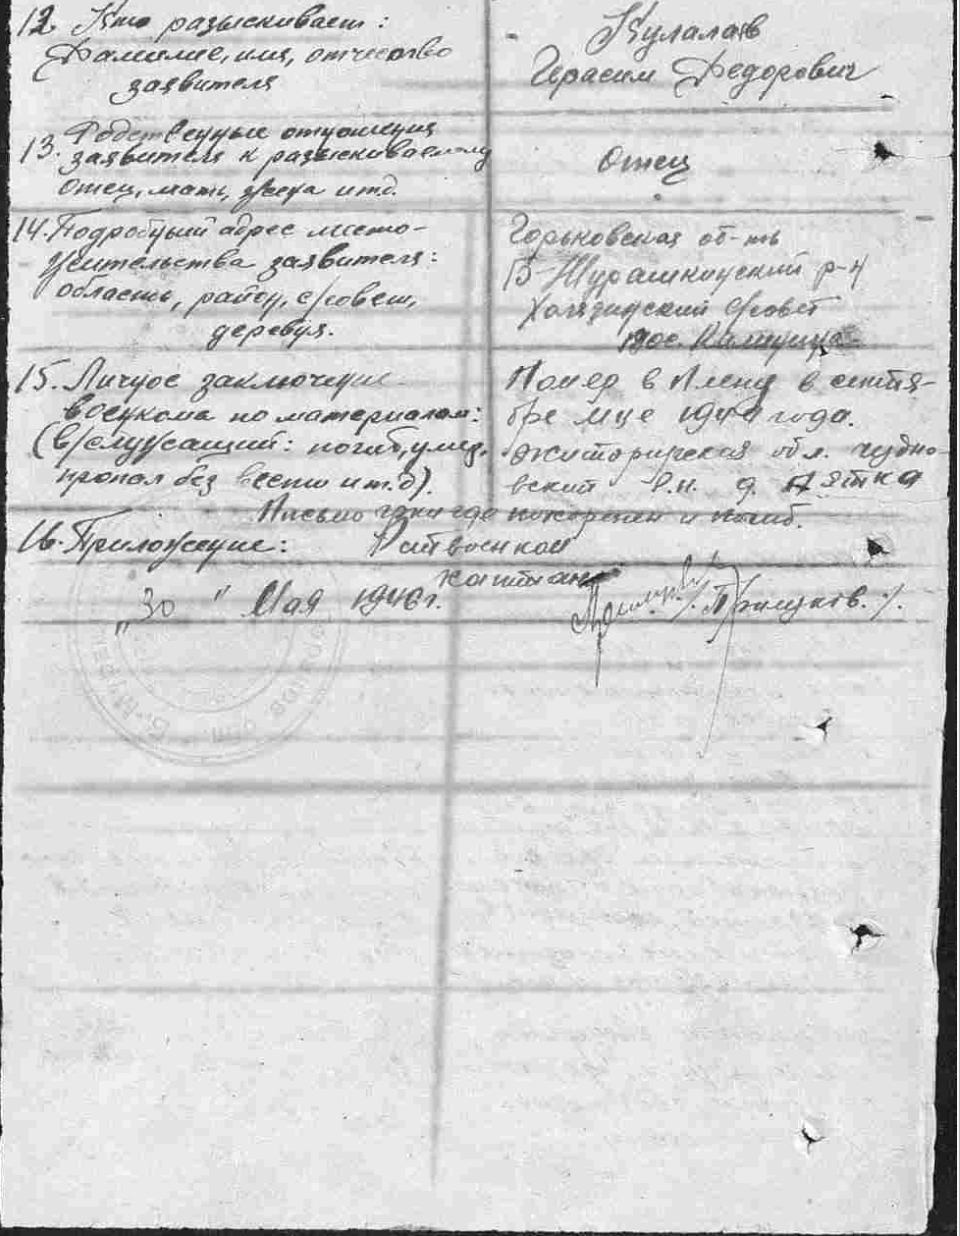 12. Кто разыскивает:
Фамилие, имя, отчество
заявителя
Кулалаев
Герасим Федорович
13. Родственные отношения
заявителя к разыскиваемому
отец, мать, жена и т.д.
Отец
14. Подробный адрес место-
жительства заявителя:
область, район, с/совет,
деревня.
Горьковская об-ть
Б-Мурашкинский р-н
Холязинский с/совет
пос.
15. Личное заключение
военкома по материалам:
(в/служащий: погиб, умер,
пропал без вести и т.д).
Помер в плену в сентя-
бре м-це года.
Житомирская обл. Чудно-
вский р.н. д. Пятка
Письмо где похоронен и погиб.
16. Приложение:
Райвоенком
капитан
"30" Мая 1946 г.